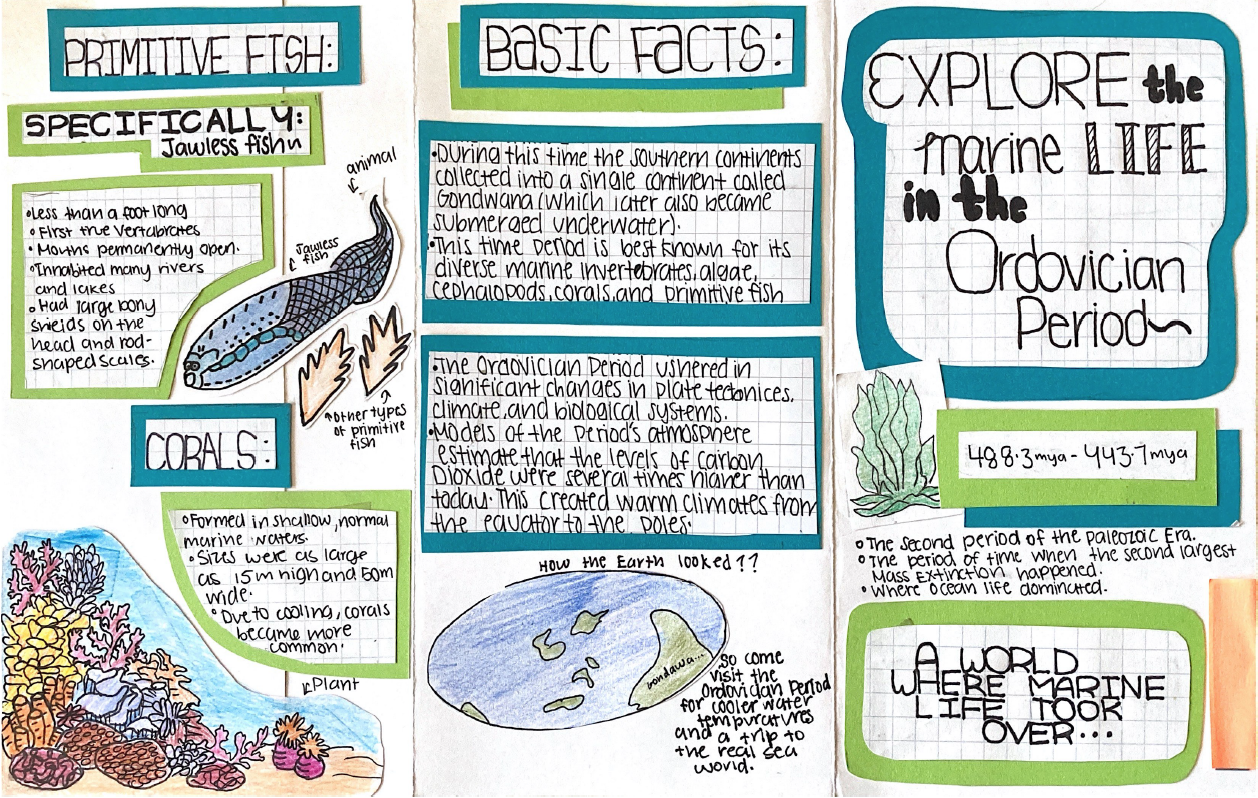 PRIMITIVE FISH:
SPECIFICALLY:
Jawless fish
animal
Jawless
fish
•Less than a foot long
•First true vertabrates
•Mouths permanently open.
•Inhabited many rivers
and lakes
•Had large bony
shields on the
head and rod-
shaped scales.
other types
of primitive
fish
CORALS:
•Formed in shallow, normal
marine waters.
•Sizes were as large
as 15m high and 50m
wide.
•Due to cooling, corals
became more
common.
Plant
BASIC FACTS:
•During this time the southern continents
collected into a single continent called
Gondwana (which later also became
submerged underwater).
•This time period is best known for its
diverse marine invertebrates, algae,
cephalopods, corals, and primitive fish
•The Ordovician Period ushered in
significant changes in plate tectonices,
climate, and biological systems.
•Models of the period's atmosphere
estimate that the levels of carbon
Dioxide were several times higher than
today. This created warm climates from
the equator to the poles.
How the Earth looked??
So come
visit the
Ordovician Period
for cooler water
tempuratures
and a trip to
the real sea
world.
EXPLORE the
marine LIFE
in the
Ordovician
Period~
488.3mya - 443.7mya
•The second period of the Paleozoic Era.
•The period of time when the second largest
Mass Extinction happened.
•Where ocean life dominated.
A WORLD
WHERE MARINE
LIFE TOOK
OVER...